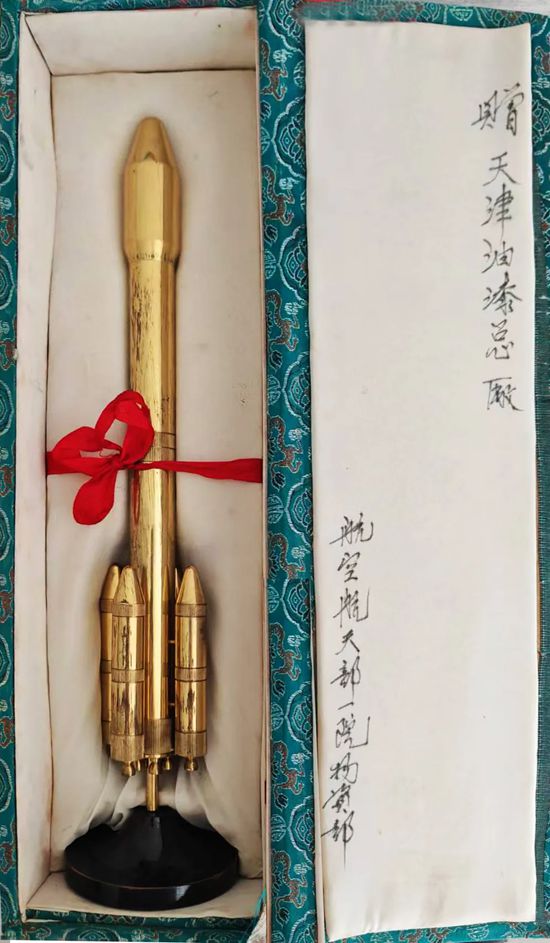 赠天津油漆总厰
航空航天部一院物资部